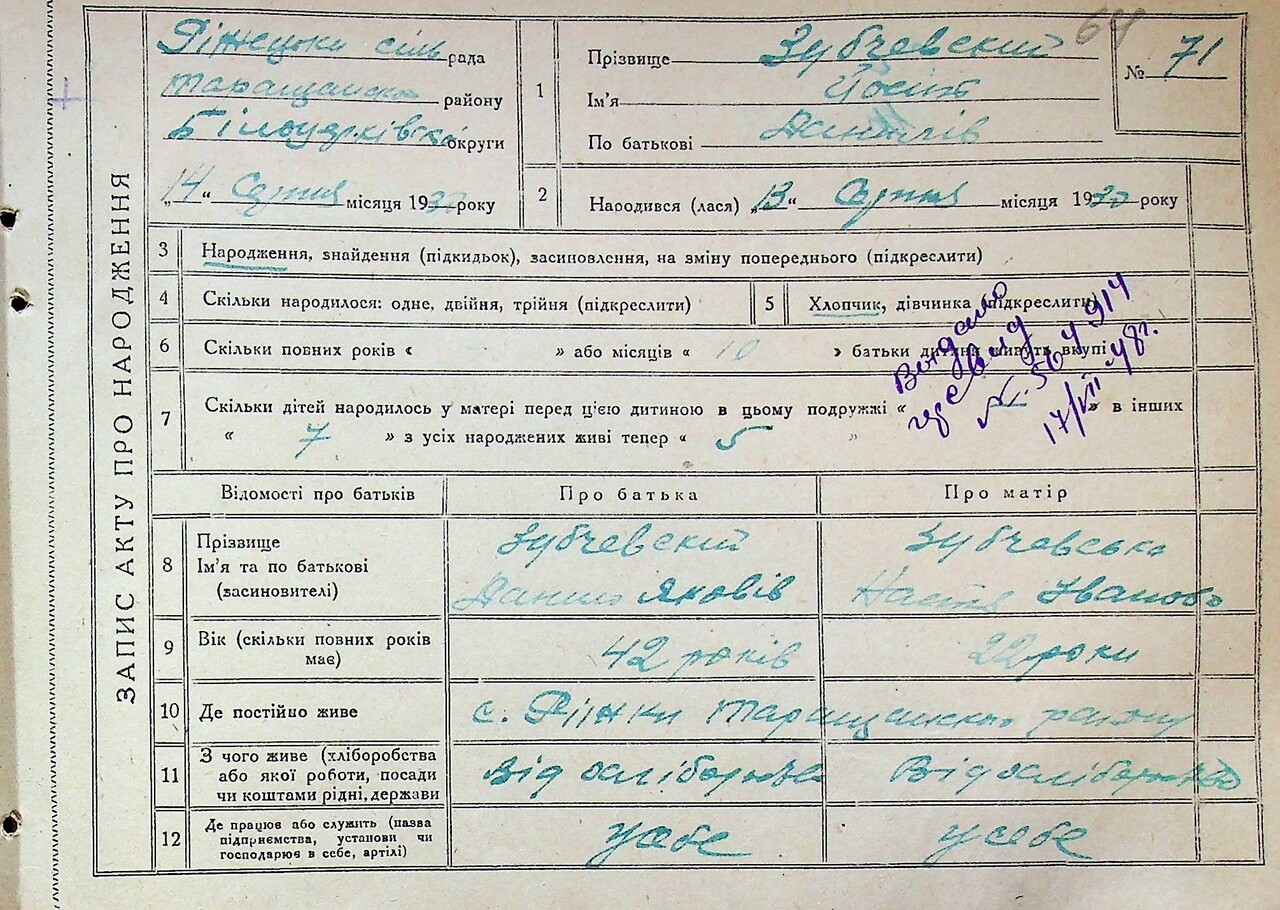 ЗАПИС АКТУ ПРО НАРОДЖЕННЯ
64
сіль рада
району
округи
„14“ Серпня місяця 1930 року
1
Прізвище Зубчевский
Ім'я Йосип
По батькові Данилів
№ 71
2
Народився (лася) „13“ Серпня місяця 1930 року
3 Народження, знайдення (підкидьок), засиновлення, на зміну попереднього (підкреслити)
4 Скільки народилося: одне, двійня, трійня (підкреслити)
5 Хлопчик, дівчинка (підкреслити)
6 Скільки повних років « » або місяців « 10 » батьки дитини живуть вкупі
7 Скільки дітей народилось у матері перед ц'єю дитиною в цьому подружжі « — » в інших
« 7 » з усіх народжених живі тепер « 5 »
Видано
17/VII-48г.
Відомості про батьків Про батька Про матір
8 Прізвище
Ім'я та по батькові
(засиновителі)
Зубчевский
Данило Яковів
Зубчевська
Настя Іванова
9 Вік (скільки повних років
має)
42 років
22 роки
10 Де постійно живе
с. Ріжки Таращанського району
11 З чого живе (хліборобства
або якої роботи, посади
чи коштами рідні, держави
12 Де працює або служить (назва
підприємства, установи чи
господарює в себе, артілі)
у себе
у себе